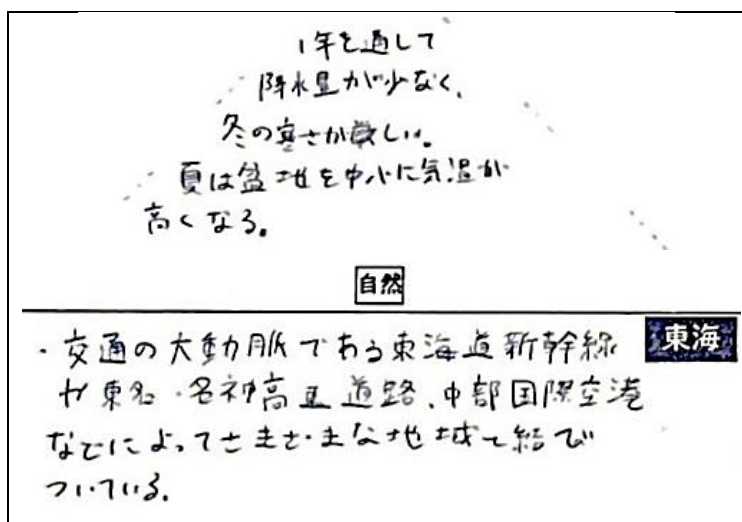 1年を通して
降水量が少なく、
冬の寒さが厳しい。
夏は盆地を中心に気温が
高くなる。
自然
東海
・交通の大動脈である東海道新幹線
や東名・名神高速道路、中部国際空港
などによってさまざまな地域と結び
ついている。